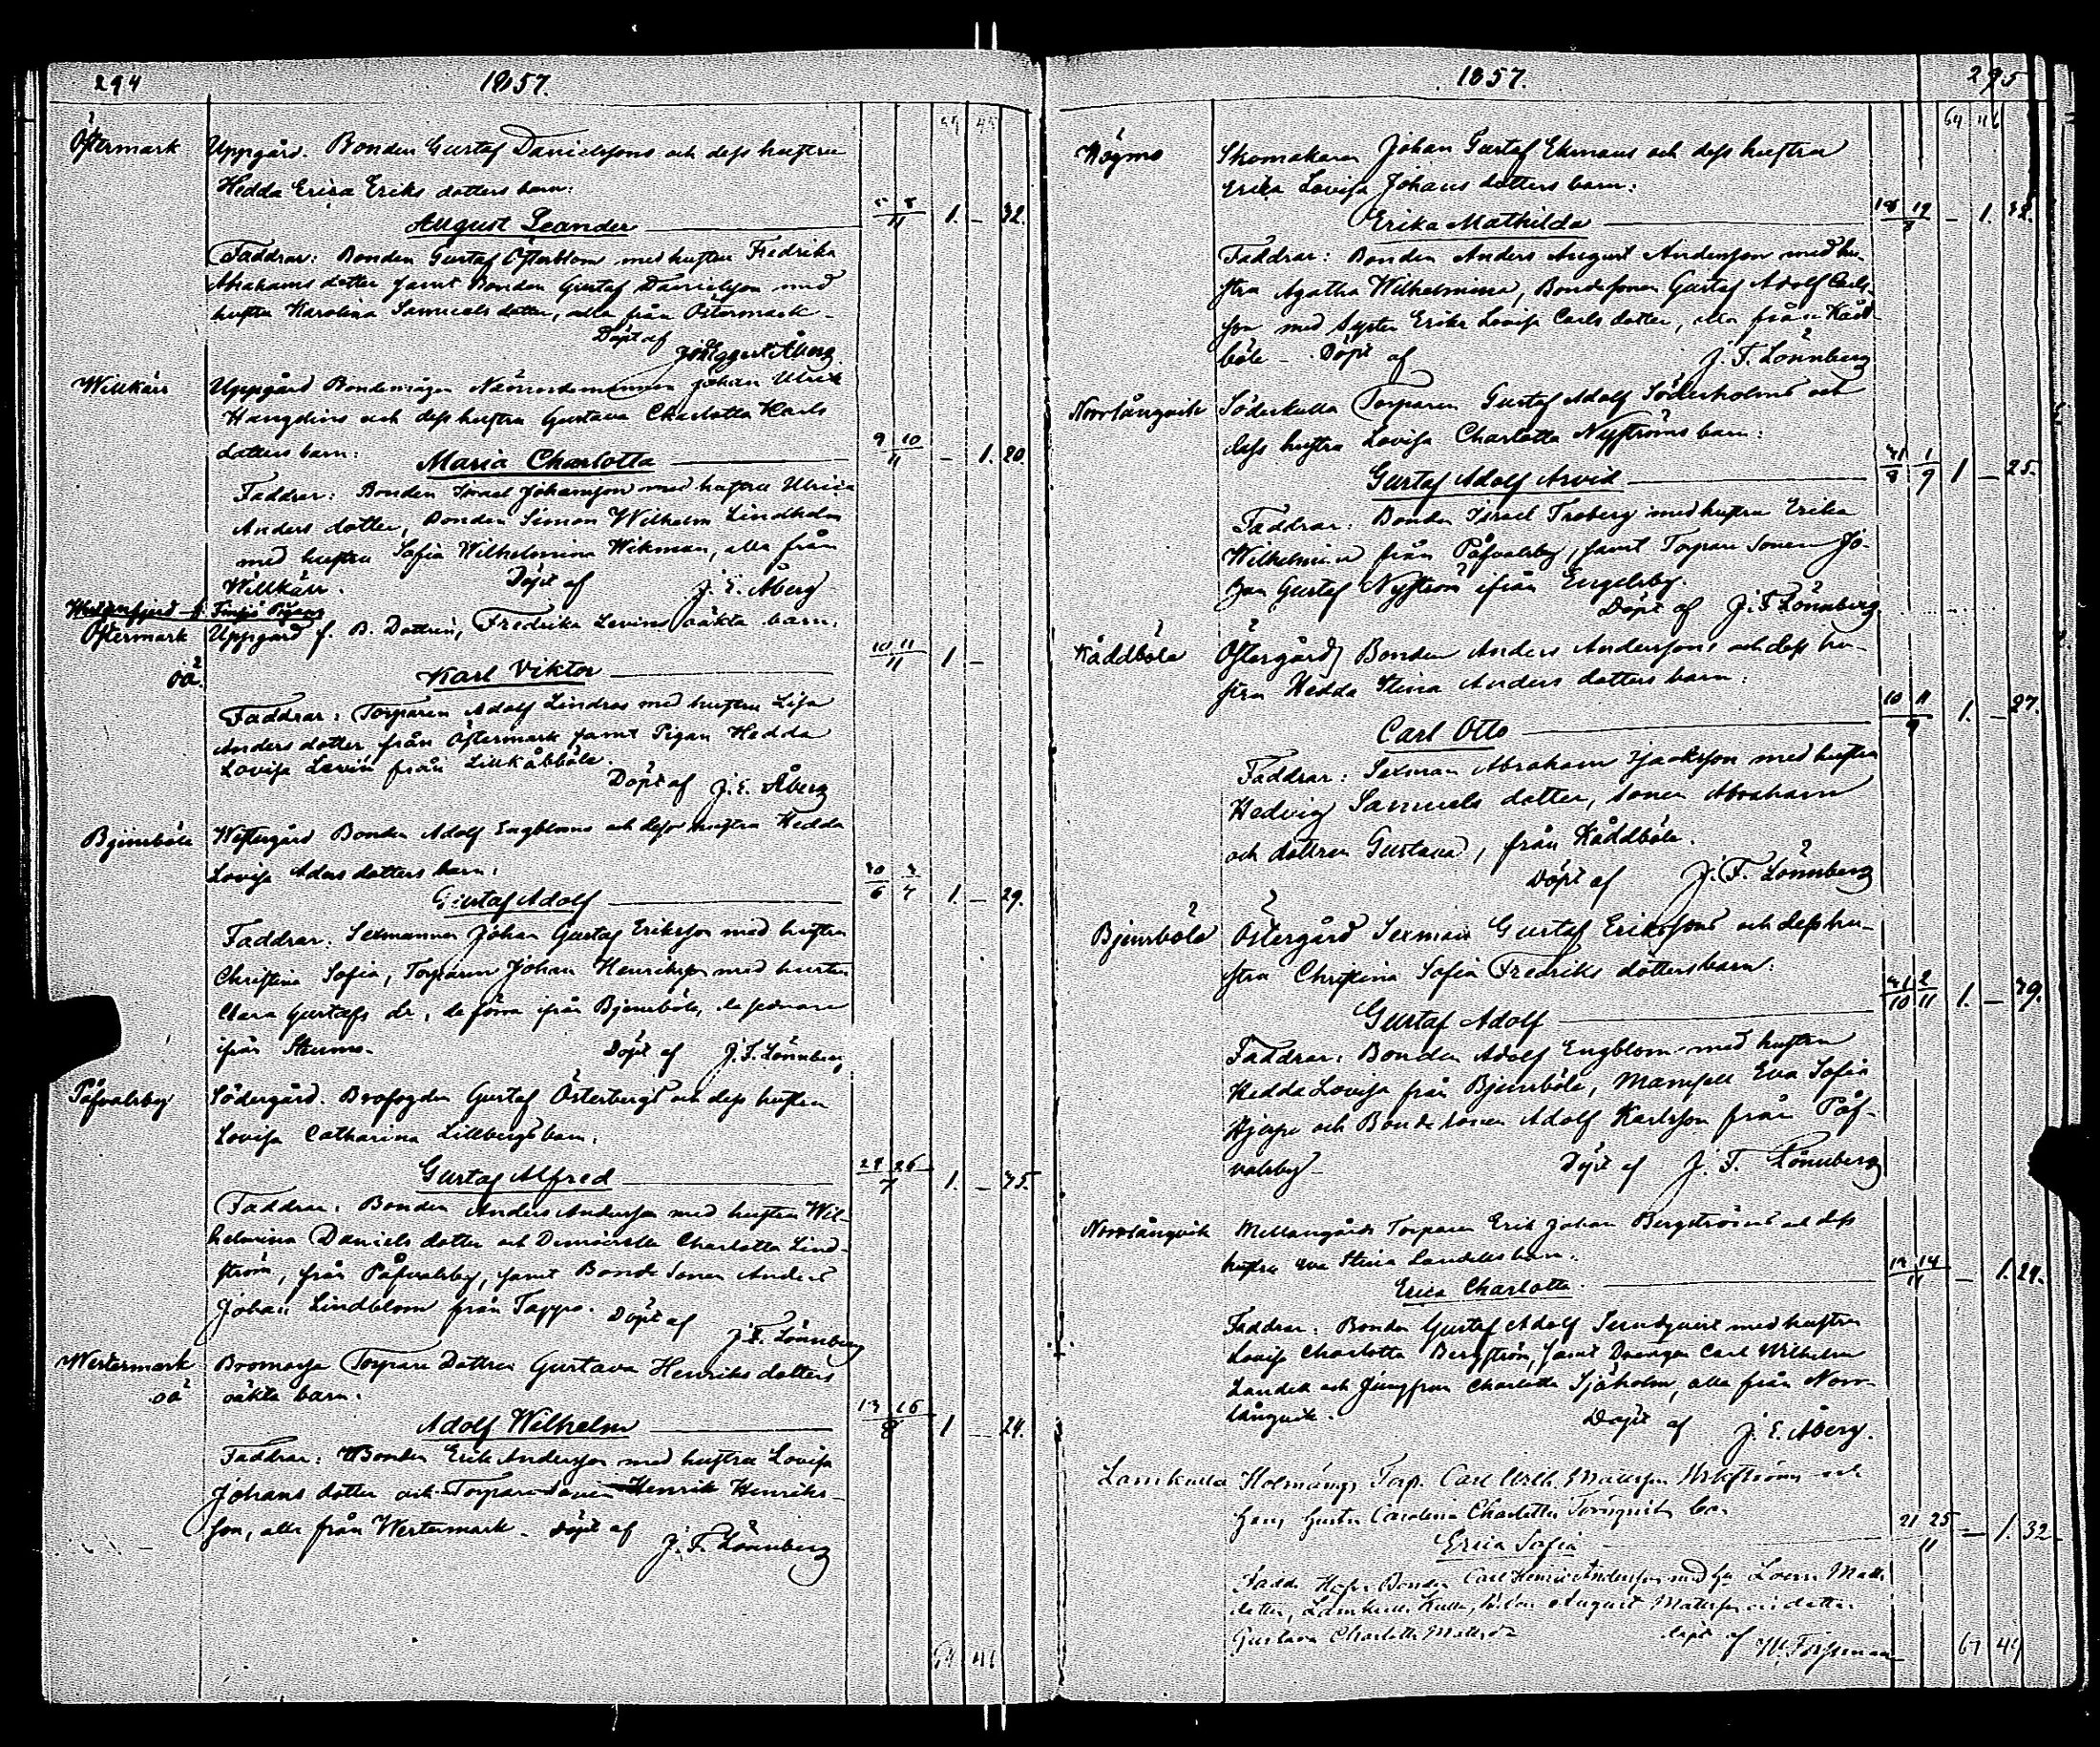 294
1857.
59 45
Östermark
Uppgård. Bonden Gustaf Danielssons och dess hustru
Hedda Erica Eriks dotters barn:
August Leander
8
11
1. — 32.
Faddrar: Bonden Gustaf Österblom med hustru Fredrika
Abrahams dotter samt Bonden Gustaf Danielsson med
hustru Karolina Samuels dotter, alla från Östermark.
Döpt af
Joh Eggert Åberg
Willkärr
Uppgård Bondemågen Nämndemannen Johan Ulrik
och dess hustru Gustava Charlotta Karls
dotters barn:
Maria Charlotta
9 10
11
— 1. 20.
Faddrar: Bonden Israel Johansson med hustru Ulrica
Anders dotter, Bonden Simon Wilhelm Lindholm
med hustru Sofia Wilhelmina Wikman, alla från
Willkärr.
Döpt af
J. E. Åberg
Östermark
Uppgård f. B. Dottren, Fredrika Levins oäkta barn.
oä.
Karl Viktor
10 11
11
1 —
Faddrar: Torparen Adolf Lindros med hustru Lisa
Anders dotter från Östermark samt Pigan Hedda
Lovisa Levin från Lillkåbböle.
Döpt af J. E. Åberg
Bjensböle
Westergård Bonden Adolf Engbloms och dess hustru Hedda
Lovisa Aders dotters barn:
Gustaf Adolf
30
6 7
1. — 29.
Faddrar: Sexmannen Johan Gustaf Eriksson med hustru
Christina Sofia, Torparen Johan Henriksson med hustru
Clara Gustafs dr, de förra ifrån Bjensböle, de sednare
ifrån
Döpt af J. F. Lönnberg
Påfvalsby
Södergård. Brofogden Gustaf Österbergs och dess hustru
Lovisa Catharina Lillbergs barn.
Gustaf Alfred
26
7
1. — 35.
Faddrar: Bonden Anders Andersson med hustru Wil-
helmina Daniels dotter och Demoiselle Charlotta Lind-
ström, från Påfvalsby, samt Bonde Sonen Anders
Johan Lindblom från Tappo. Döpt af
J. F. Lönnberg
Westermark
Bromarfs Torpare Dottren Gustava Henriks dotters
oä
oäkta barn.
Adolf Wilhelm
13 16
8
1 — 24.
Faddrar: Bonden Erik Andersson med hustru Lovisa
Johans dotter och Torpare Sonen Henrik Henriks-
son, alla från Westermark. Döpt af
J. F. Lönnberg
64 46
1857.
295
64 46
Högmo
Skomakaren Johan Gustaf Ekmans och dess hustru
Erika Lovisa Johans dotters barn:
Erika Mathilda
18 19
8
— 1. 32.
Faddrar: Bonden Anders August Andersson med hu-
stru Agatha Wilhelmina, Bondesonen Gustaf Adolf Carls-
son med Syster Erika Lovisa Carls dotter, alla från Kådd-
böle — Döpt af
J. F. Lönnberg
Norrlångvik
Söderkulla Torparen Gustaf Adolf Söderholms och
dess hustru Lovisa Charlotta Nyströms barn:
Gustaf Adolf Arvid
31 1
8 9
1 — 25.
Faddrar: Bonden Israel Troberg med hustru Erika
Wilhelmina från Påfvalsby, samt Torpare Sonen Jo-
han Gustaf Nyström ifrån Engelsby.
Döpt af J. F. Lönnberg
Kåddböle
Östergård, Bonden Anders Anderssons och dess hu-
stru Hedda Stina Anders dotters barn:
Carl Otto
10 11
9
1. — 27.
Faddrar: Sexman Abraham Isaksson med hustru
Hedvig Samuels dotter, Sonen Abraham
och dottren Gustava, från Kåddböle.
Döpt af J. F. Lönnberg
Bjensböle
Östergård Sexman Gustaf Erikssons och dess hu-
stru Christina Sofia Fredriks dotters barn:
Gustaf Adolf
31 2
10 11
1. — 39.
Faddrar: Bonden Adolf Engblom med hustru
Hedda Lovisa från Bjensböle, Mamsell Eva Sofia
Hjerpe och Bonde sonen Adolf Karlsson från Påf-
valsby
Döpt af J. F. Lönnberg
Norrlångvik
Mellangårds Torparen Erik Johan Bergströms och dess
hustru Eva Stina Landells barn:
Erica Charlotta
13 14
11
— 1. 29.
Faddrar: Bonden Gustaf Adolf med hustru
Lovisa Charlotta Bergström, samt Drengen Carl Wilhelm
Landell och Jungfrun Charlotta Sjöholm, alla från Norr-
långvik.
Döpt af J. E. Åberg.
Lamkulla
Holmängs Torp. Carl Wilh. Mattsson och
hans hustru Carolina Charlotta Törnqvists barn
Erica Sofia
21 25
11
— 1. 32
Fadd. Bonden Carl Henric Andersson med hu Lovisa Matts
dotter, Lamkulla Kulla, August Mattsson dotter
Gustava Charlotta Mattsdr
döpt af
W. Forssman
67 49